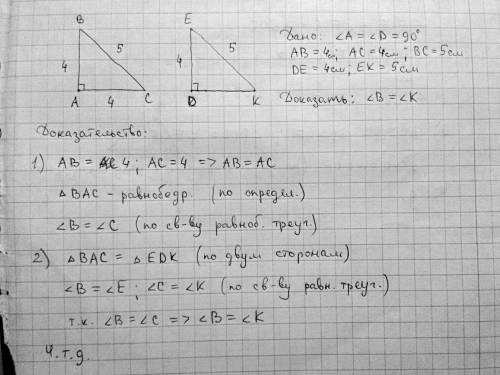 B
5
4
A
4
C
E
5
4
D
K
Дано: ∠A = ∠D = 90°
AB = 4см; AC = 4см; BC = 5см
DE = 4см; EK = 5см
Доказать: ∠B = ∠K
Доказательство:
1) AB = 4; AC = 4 => AB = AC
△BAC - равнобедр. (по определ.)
∠B = ∠C (по св-ву равноб. треуг.)
2) △BAC = △EDK (по двум сторонам)
∠B = ∠E; ∠C = ∠K (по св-ву равн. треуг.)
т.к. ∠B = ∠C => ∠B = ∠K
Ч.т.д.